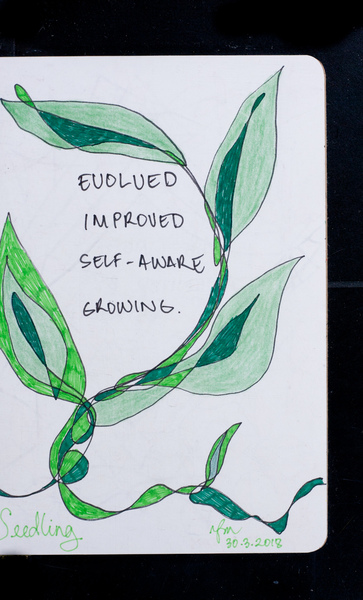 EVOLVED
IMPROVED
SELF-AWARE
GROWING.
Seedling
nfm
30.3.2018